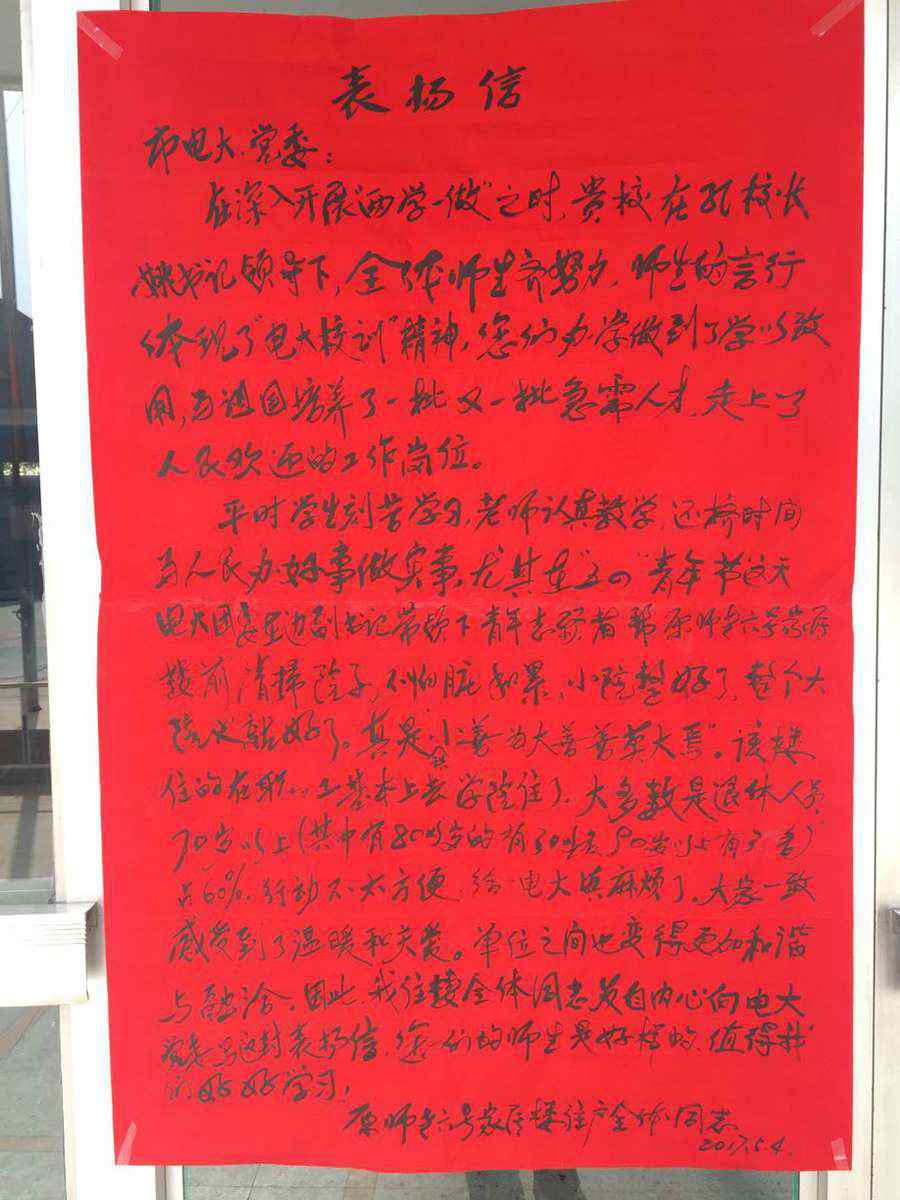 表扬信
市电大党委：
在深入开展“两学一做”之时，贵校在孔校长
姚书记领导下，全体师生齐努力，师生的言行
体现了“电大校训”精神，您们办学做到了学以致
用，为祖国培养了一批又一批急需人才，走上了
人民欢迎的工作岗位。
平时学生刻苦学习，老师认真教学，还挤时间
为人民办好事做实事，尤其在“五四”青年节这天
电大团委 边副书记带领下青年志愿者帮原师专六号家属
楼前清掃院子，不怕脏和累，小院整好了，整个大
院也就好了。真是“小善为大善善莫大焉”。该楼
住的在职 工基本上去学院住了，大多数是退休人员
70岁以上（其中有80岁的有 90岁以上有 ）
占60%，行动不太方便，给电大添麻烦了。大家一致
感受到了温暖和关爱。单位之间也变得更加和谐
与融洽。因此，我住楼全体同志发自内心向电大
党委写这封表扬信，您们的师生是好样的，值得我
们好好学习！
原师专六号家属楼住户全体同志
2017.5.4.